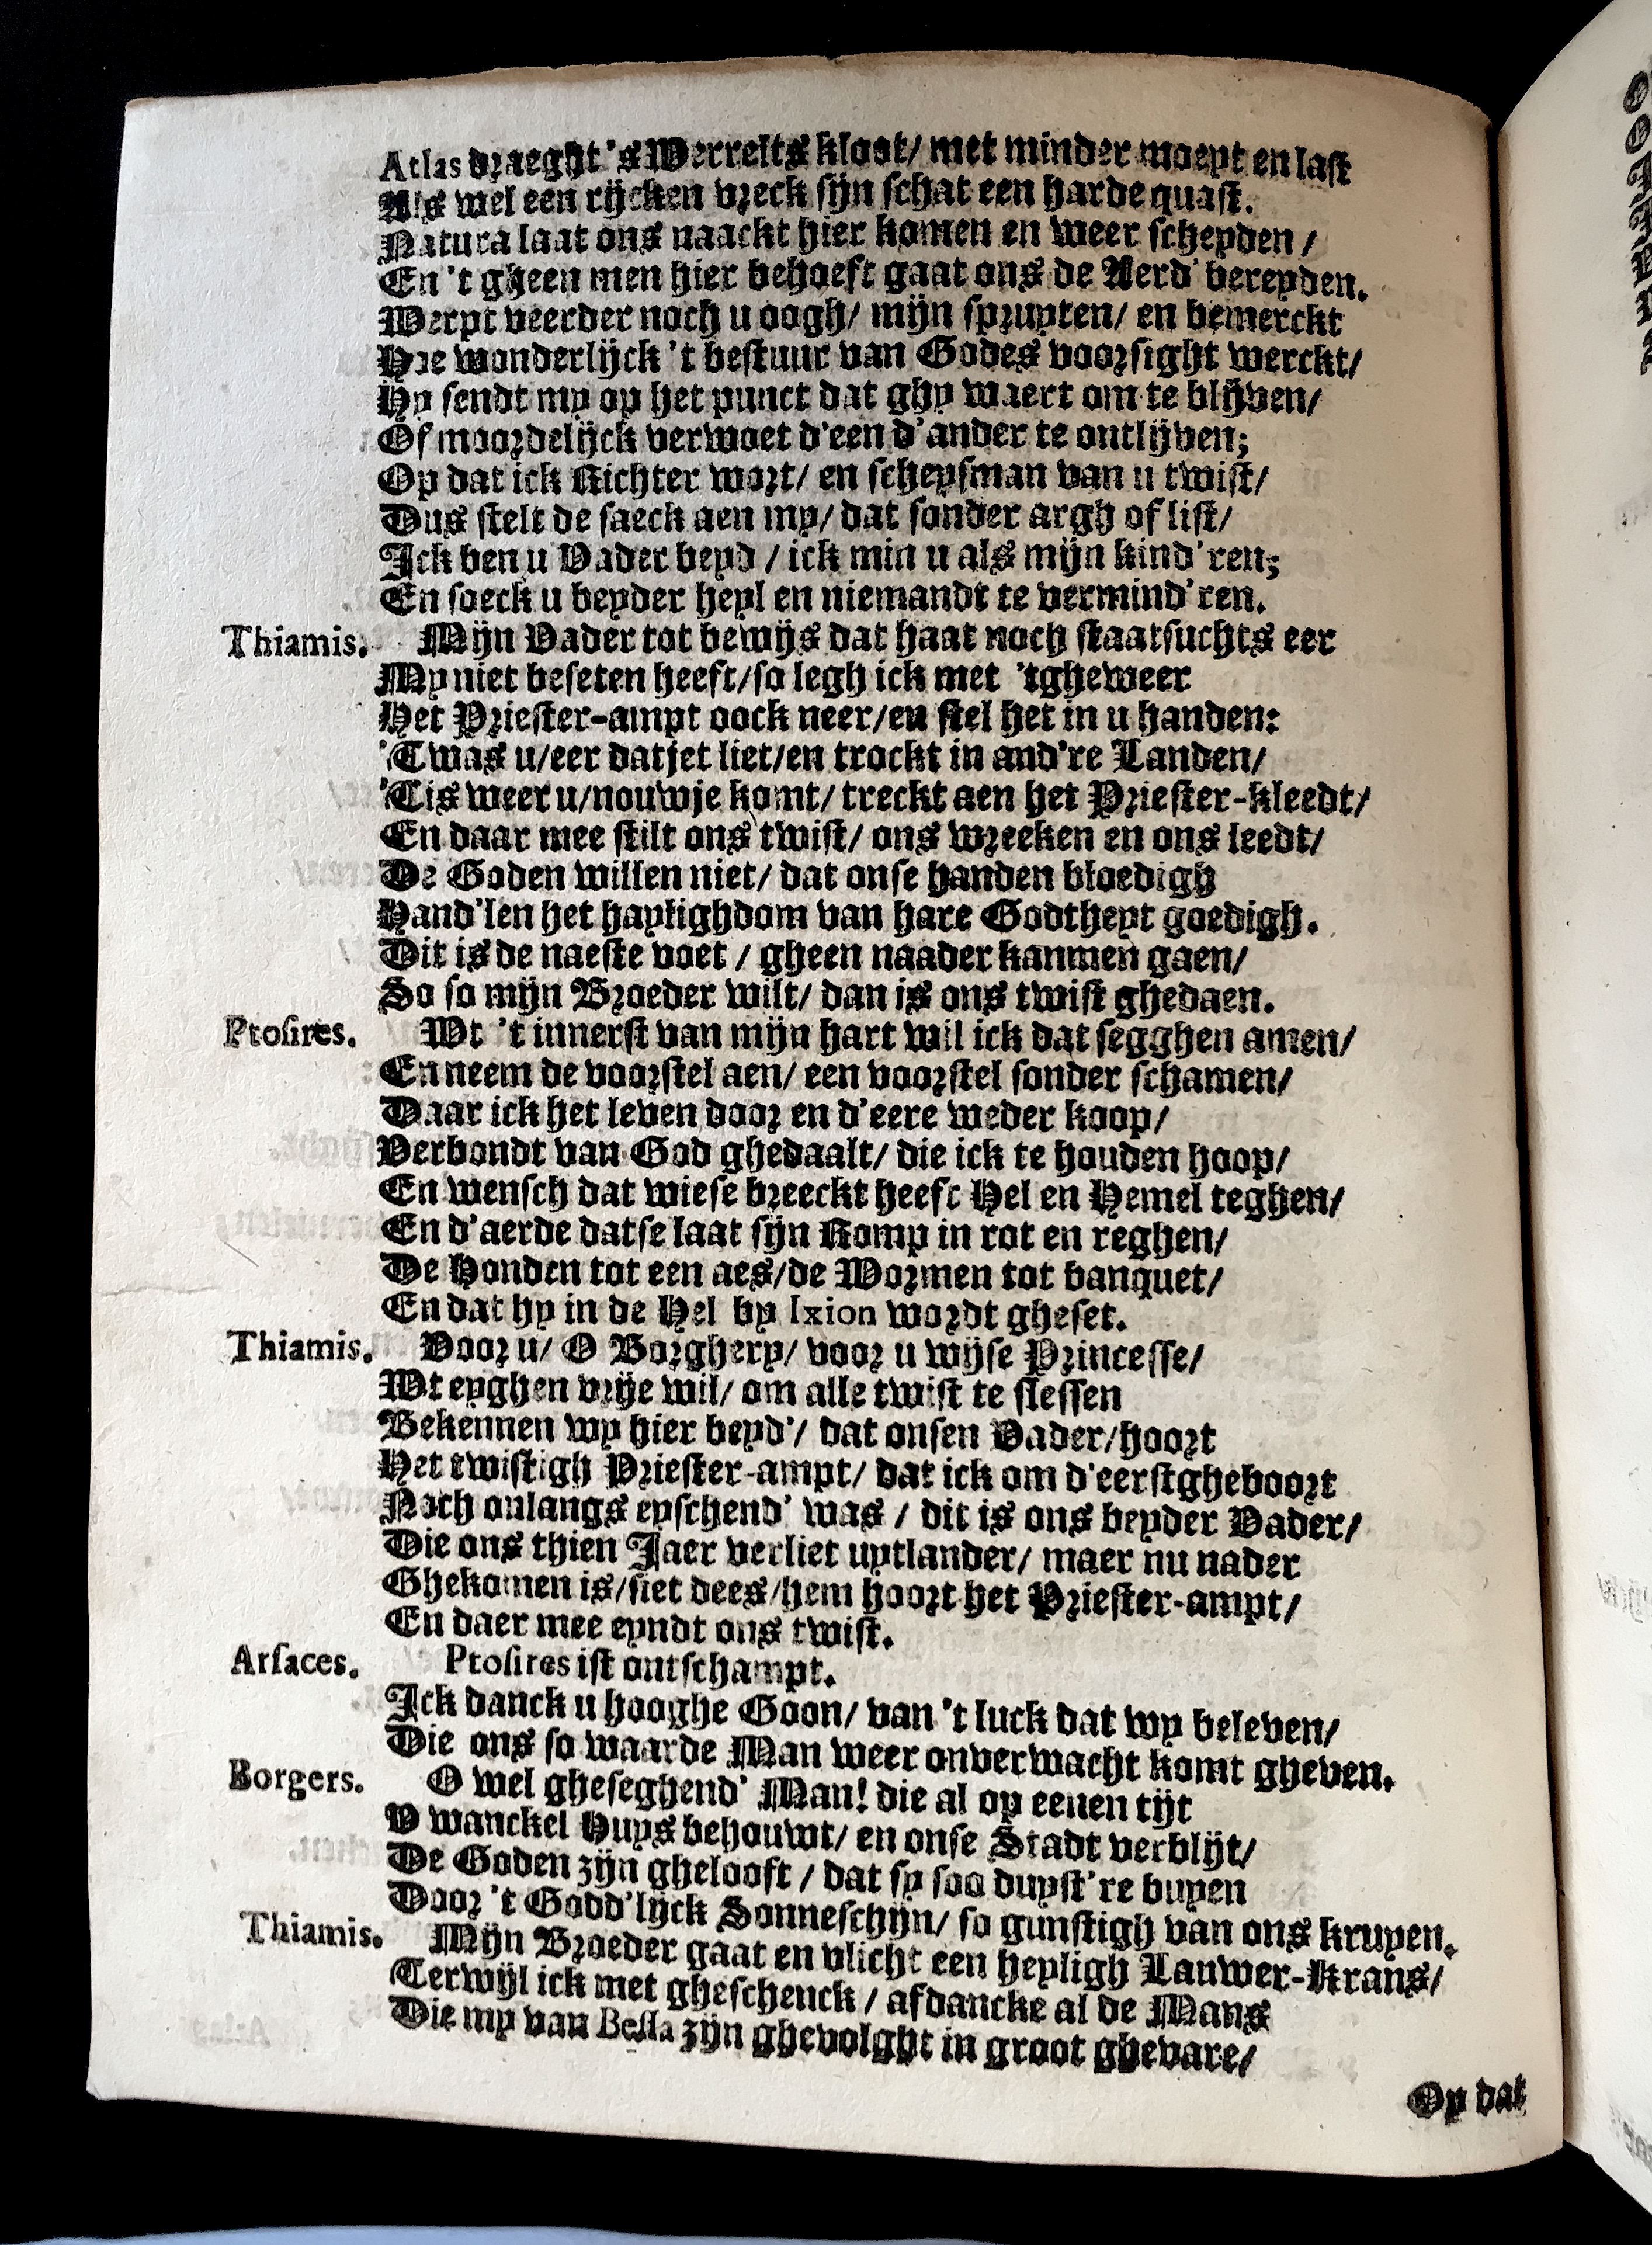 Atlas draeght 's Werrelts kloot/ met minder moeyt en last
Als wel een rijcken vreck sijn schat een harde quast.
Natura laat ons naackt hier komen en weer scheyden /
En 't gheen men hier behoeft gaat ons de Aerd' bereyden.
Werpt veerder noch u oogh/ mijn spruyten/ en bemerckt
Hoe wonderlijck 't bestuur van Godes voorsight werckt/
Hy sendt my op het punct dat ghy waert om te blijven/
Of moordelijck verwoet d'een d'ander te ontlijven;
Op dat ick Richter wort/ en scheysman van u twist/
Dus stelt de saeck aen my/ dat sonder argh of list/
Ick ben u Vader beyd / ick min u als mijn kind'ren;
En soeck u beyder heyl en niemandt te vermind'ren.
Thiamis. Mijn Vader tot bewijs dat haat noch staatsuchts eer
My niet beseten heeft/so legh ick met 'tgheweer
Het Priester-ampt oock neer/en stel het in u handen:
'Twas u/eer datjet liet/en trockt in and're Landen/
'Tis weer u/nouwje komt/ treckt aen het Priester-kleedt/
En daar mee stilt ons twist/ ons wreeken en ons leedt/
De Goden willen niet/ dat onse handen bloedigh
Hand'len het haylighdom van hare Godtheyt goedigh.
Dit is de naeste voet / gheen naader kanmen gaen/
So so mijn Broeder wilt/ dan is ons twist ghedaen.
Ptosires. Wt 't innerst van mijn hart wil ick dat segghen amen/
En neem de voorstel aen/ een voorstel sonder schamen/
Daar ick het leven door en d'eere weder koop/
Verbondt van God ghedaalt/ die ick te houden hoop/
En wensch dat wiese breeckt heeft Hel en Hemel teghen/
En d'aerde datse laat sijn Romp in rot en reghen/
De Honden tot een aes/de Wormen tot banquet/
En dat hy in de Hel by Ixion wordt gheset.
Thiamis. Voor u/ O Borghery/ voor u wijse Princesse/
Wt eyghen vrije wil/ om alle twist te slessen
Bekennen wy hier beyd'/ dat onsen Vader/hoort
Het twistigh Priester-ampt/ dat ick om d'eerstgheboort
Noch onlangs eyschend' was / dit is ons beyder Vader/
Die ons thien Jaer verliet uytlander/ maer nu nader
Ghekomen is/siet dees/hem hoort het Priester-ampt/
En daer mee eyndt ons twist.
Arsaces. Ptosires ist ontschampt.
Ick danck u hooghe Goon/ van 't luck dat wy beleven/
Die ons so waarde Man weer onverwacht komt gheven.
Borgers. O wel gheseghend' Man! die al op eenen tijt
V wanckel Huys behouwt/ en onse Stadt verblijt/
De Goden zijn ghelooft / dat sy soo duyst're buyen
Door 't Godd'lijck Sonneschijn/ so gunstigh van ons kruyen.
Thiamis. Mijn Broeder gaat en vlicht een heyligh Lauwer-Krans/
Terwijl ick met gheschenck / afdancke al de Mans
Die my van Bessa zijn ghevolght in groot ghevare/
Op dat